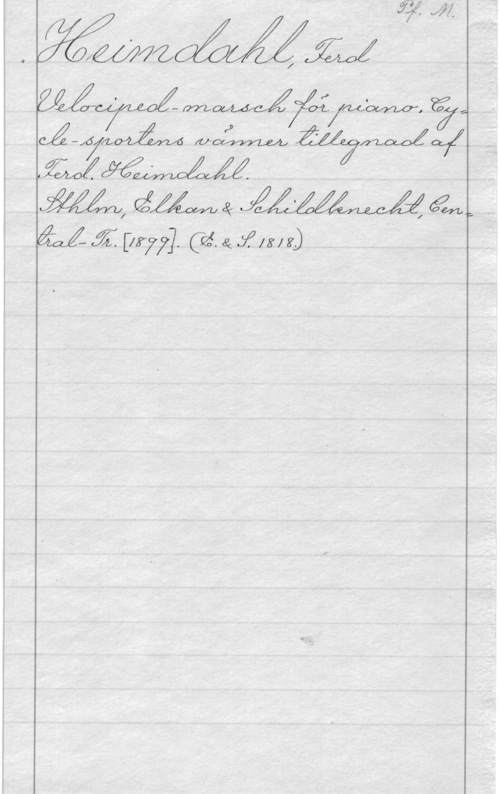 Pf. M.
Heimdahl, Ferd
Velociped-marsch för piano. Cy-
cle-sportens vänner tillegnad af
Ferd. Heimdahl.
Sthlm, Elkan & Schildknecht, Cen-
tral-Tr. [1899]. (E. & S. 1818.)